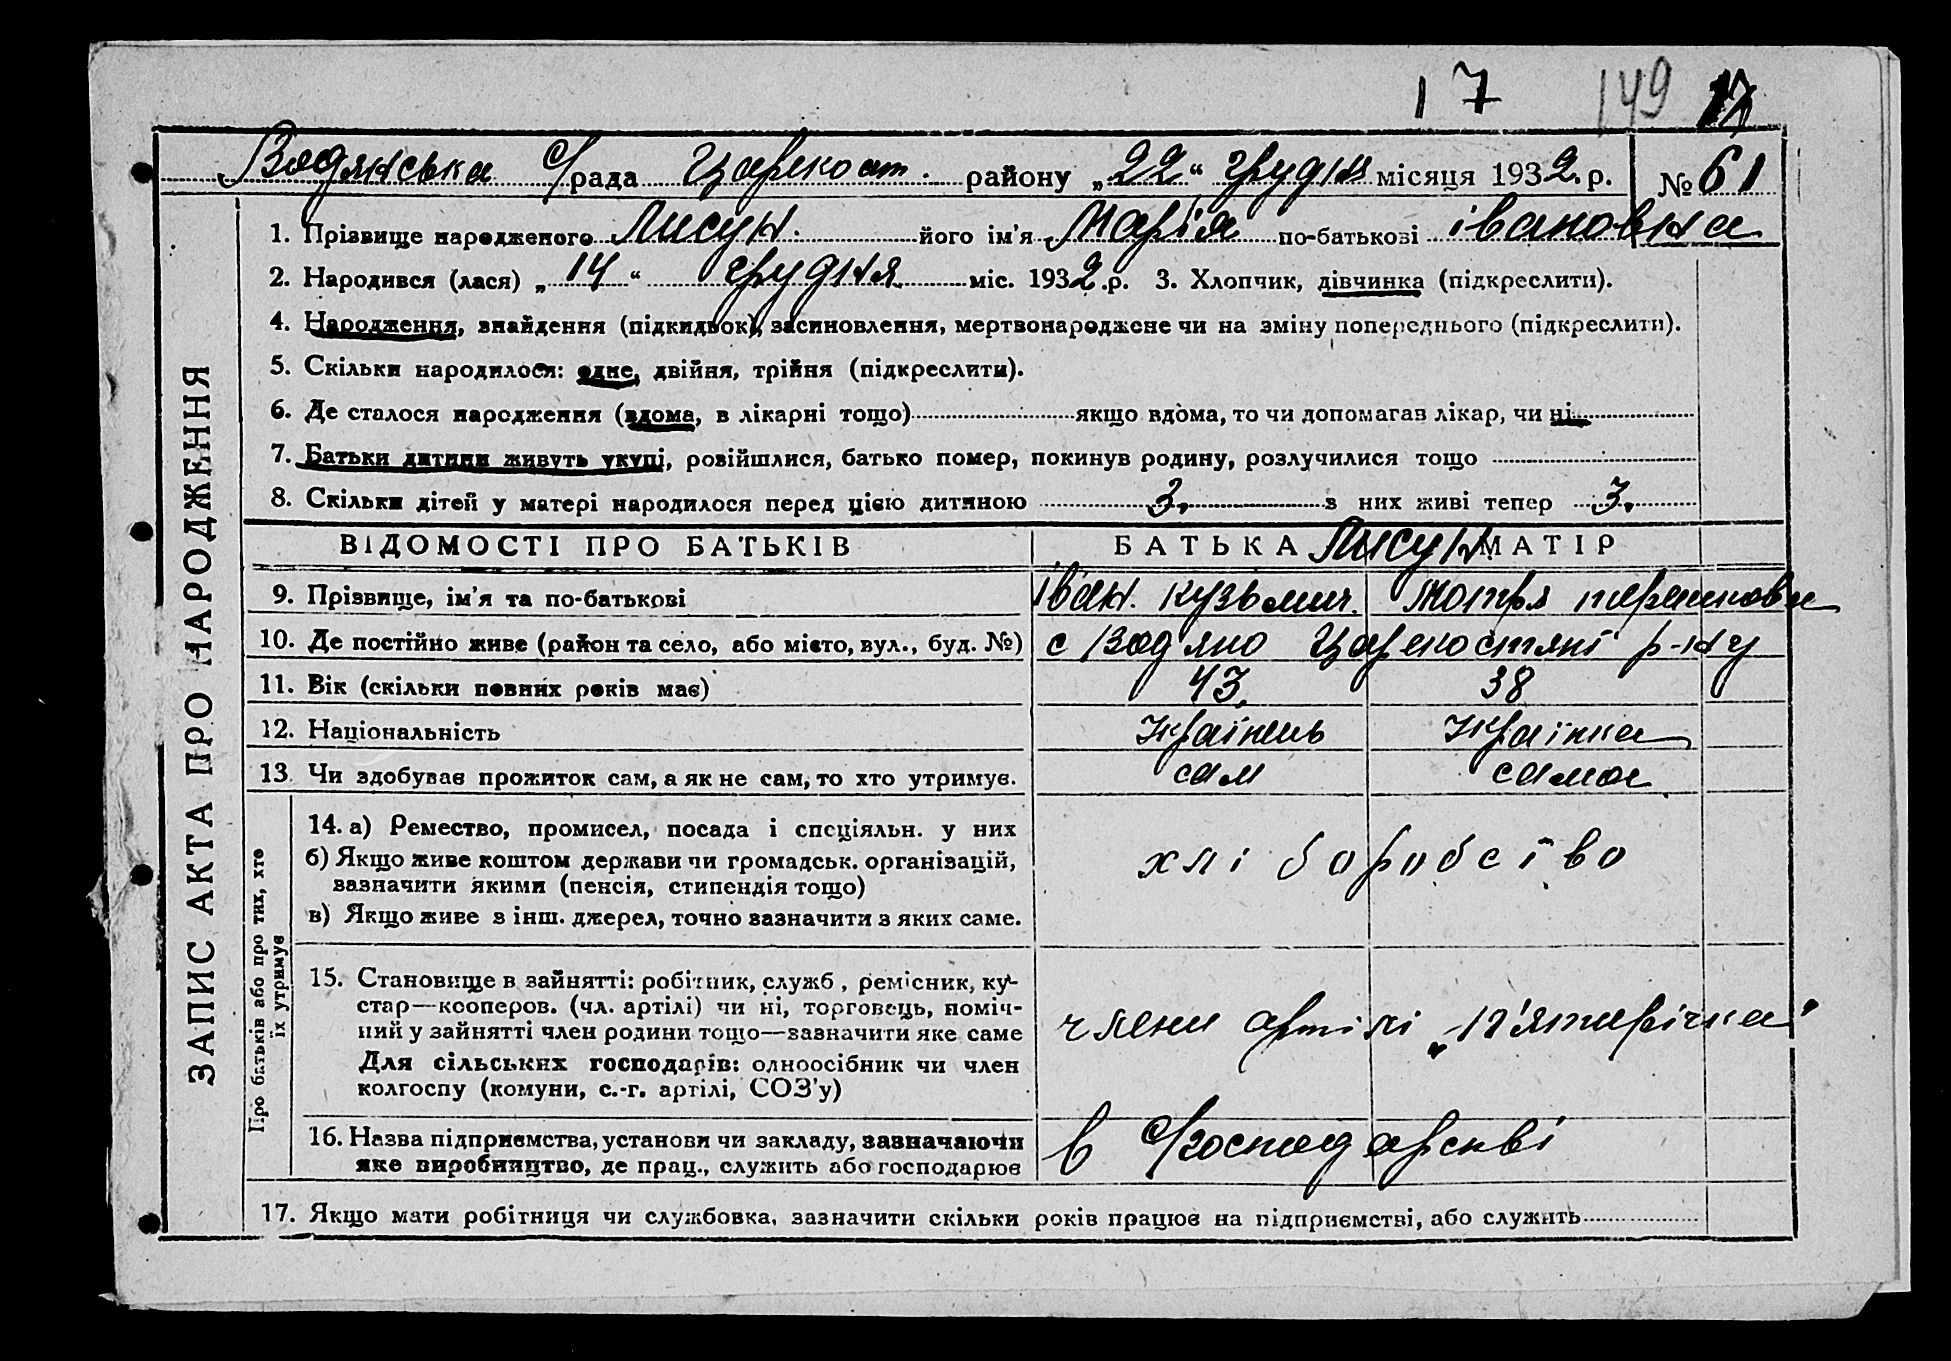 17 149
Водянська С/рада Царекост. району „22“ грудня місяця 1932. р. № 61
ЗАПИС АКТА ПРО НАРОДЖЕННЯ
1. Прізвище народженого Лисун. його ім’я Марія по-батькові івановна
2. Народився (лася) „14“ грудня міс. 1932.р. 3. Хлопчик, дівчинка (підкреслити).
4. Народження, знайдення (підкидьок), засиновлення, мертвонароджене чи на зміну попереднього (підкреслити).
5. Скільки народилося: одне, двійня, трійня (підкреслити).
6. Де сталося народження (вдома, в лікарні тощо) якщо вдома, то чи допомагав лікар, чи ні
7. Батьки дитини живуть укупі, розійшлися, батько помер, покинув родину, розлучилися тощо
8. Скільки дітей у матері народилося перед цією дитиною 3. з них живі тепер 3.
ВІДОМОСТІ ПРО БАТЬКІВ БАТЬКА Лисун МАТІР
9. Прізвище, ім’я та по-батькові Іван. кузьмич. Мотря
10. Де постійно живе (район та село, або місто, вул., буд. №) с Водяно Царекостяні р-ну
11. Вік (скільки повних років має) 43, 38
12. Національність Українець Українка
13. Чи здобуває прожиток сам, а як не сам, то хто утримує. сам сама
Про батьків або про тих, хто їх утримує
14. а) Ремество, промисел, посада і спеціяльн. у них
б) Якщо живе коштом держави чи громадськ. організацій,
зазначити якими (пенсія, стипендія тощо)
в) Якщо живе з інш. джерел, точно зазначити з яких саме.
хліборобство
15. Становище в зайнятті: робітник, служб., ремісник, ку-
стар—кооперов. (чл. артілі) чи ні, торговець, поміч-
ний у зайнятті член родини тощо—зазначити яке саме
Для сільських господарів: одноосібник чи член
колгоспу (комуни, с.-г. артілі, СОЗ’у)
члени артілі „П'ятирічка"
16. Назва підприємства, установи чи закладу, зазначаючи
яке виробництво, де прац., служить або господарює
в С/господарстві
17. Якщо мати робітниця чи службовка, зазначити скільки років працює на підприємстві, або служить